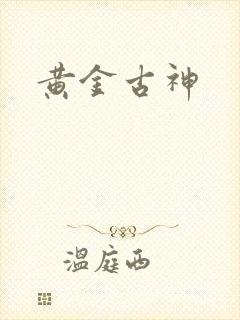 黄金古神
温庭西